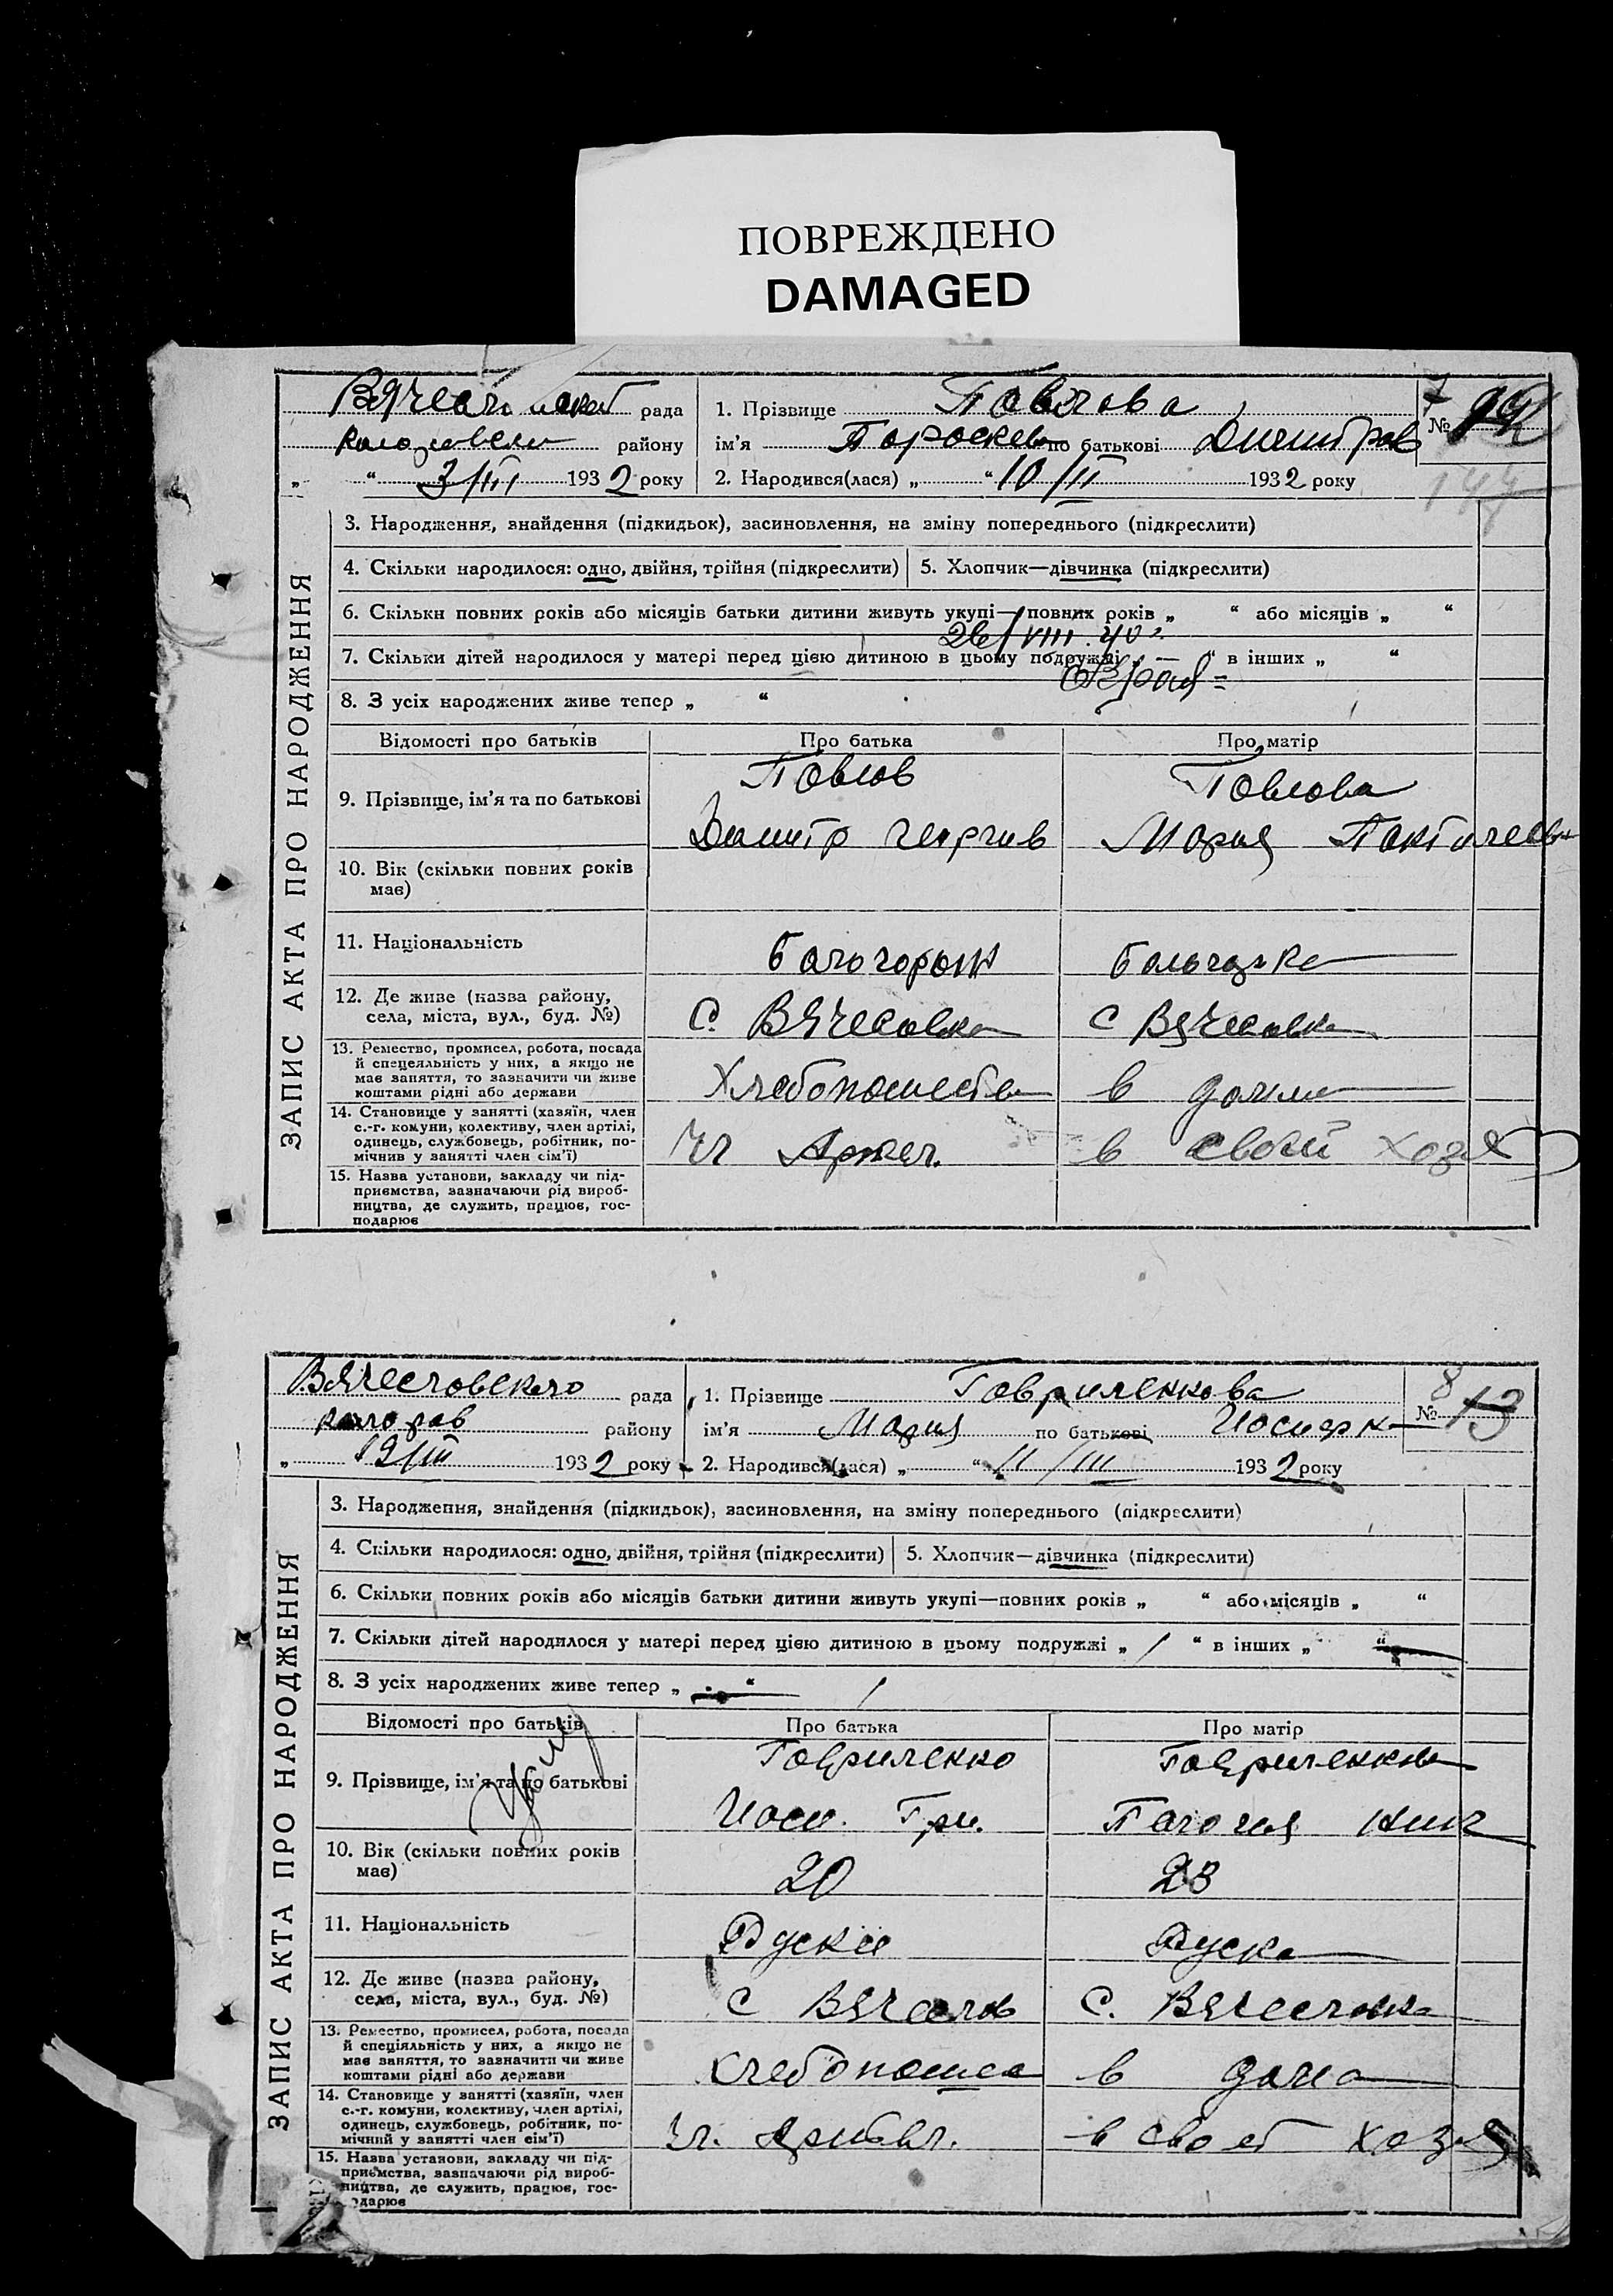 ПОВРЕЖДЕНО
DAMAGED
рада 1. Прізвище Павлова № 7
району ім'я Параскева по батькові Дмитров
„ “ 3/III 1932 року 2. Народився(лася) „ “ 10/II 1932 року
144
ЗАПИС АКТА ПРО НАРОДЖЕННЯ
3. Народження, знайдення (підкидьок), засиновлення, на зміну попереднього (підкреслити)
4. Скільки народилося: одно, двійня, трійня (підкреслити) 5. Хлопчик—дівчинка (підкреслити)
6. Скільки повних років або місяців батьки дитини живуть укупі—повних років „ “ або місяців „ “
26/VIII 40 г.
7. Скільки дітей народилося у матері перед цією дитиною в цьому подружжі „ — “ в інших „ “
8. З усіх народжених живе тепер „ “
Відомості про батьків Про батька Про матір
9. Прізвище, ім'я та по батькові Павлов Павлова
Димитр Мария
10. Вік (скільки повних років
має)
11. Національність Болгарка
12. Де живе (назва району,
села, міста, вул., буд. №) С. Вячесловка С Вячесловка
13. Ремество, промисел, робота, посада
й спецеяльність у них, а якщо не
має заняття, то зазначити чи живе
коштами рідні або держави в
14. Становище у занятті (хазяїн, член
с.-г. комуни, колективу, член артілі,
одинець, службовець, робітник, по-
мічнив у занятті член сім'ї) Чл Артел. в своей хозя
15. Назва установи, закладу чи під-
приємства, зазначаючи рід вироб-
ництва, де служить, працює, гос-
подарює
Вячесловского рада 1. Прізвище Гавриленкова № 8 13
району ім'я Мария по батькові
„ 19/III 1932 року 2. Народився(лася) „ “ 11/III 1932 року
ЗАПИС АКТА ПРО НАРОДЖЕННЯ
3. Народження, знайдення (підкидьок), засиновлення, на зміну попереднього (підкреслити)
4. Скільки народилося: одно, двійня, трійня (підкреслити) 5. Хлопчик—дівчинка (підкреслити)
6. Скільки повних років або місяців батьки дитини живуть укупі—повних років „ “ або місяців „ “
7. Скільки дітей народилося у матері перед цією дитиною в цьому подружжі „ / “ в інших „ “
8. З усіх народжених живе тепер „ “
Відомості про батьків Про батька Про матір
9. Прізвище, ім'я та по батькові Гавриленко Гавриленкова
Иоси. Гри.
10. Вік (скільки повних років
має) 20 23
11. Національність Руский Руска
12. Де живе (назва району,
села, міста, вул., буд. №) С Вячеслов С. Вячесловка
13. Ремество, промисел, робота, посада
й спеціяльність у них, а якщо не
має заняття, то зазначити чи живе
коштами рідні або держави хлебопашец в дома
14. Становище у занятті (хазяїн, член
с.-г. комуни, колективу, член артілі,
одинець, службовець, робітник, по-
мічний у занятті член сім'ї) Чл. в своей хозя
15. Назва установи, закладу чи під-
приємства, зазначаючи рід вироб-
ництва, де служить, працює, гос-
подарює